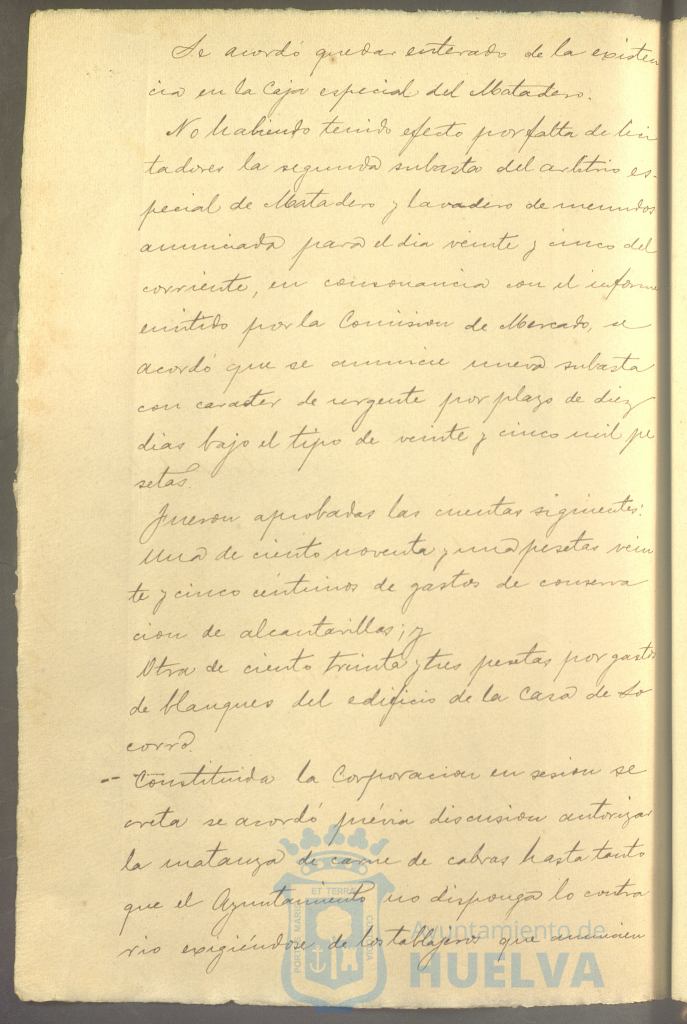 Se acordó quedar enterado de la existen
cia en la Caja especial del Matadero.
No habiendo tenido efecto por falta de lici
tadores la segunda subasta del arbitrio es-
pecial de Matadero y lavadero de menudos
anunciada para el dia veinte y cinco del
corriente, en consonancia con el informe
emitido por la Comision de Mercado, se
acordó que se anuncie nueva subasta
con caracter de urgente por plazo de diez
dias bajo el tipo de veinte y cinco mil pe
setas.
Fueron aprobadas las cuentas siguientes:
Una de ciento noventa y una pesetas vein
te y cinco céntimos de gastos de conserva
cion de alcantarillas; y
Otra de ciento treinta y tres pesetas por gastos
de blanqueo del edificio de la Casa de So
corro.
-- Constituida la Corporacion en sesion se
creta se acordó prévia discusion autorizar
la matanza de carne de cabras hasta tanto
que el Ayuntamiento no disponga lo contra
rio exigiéndose de los tablajeros que anuncien
PORTUS MARIS ET TERRAE CUSTODIA
Ayuntamiento de
HUELVA